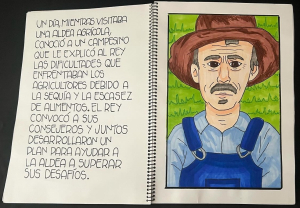 UN DÍA, MIENTRAS VISITABA
UNA ALDEA AGRÍCOLA,
CONOCIÓ A UN CAMPESINO
QUE LE EXPLICÓ AL REY
LAS DIFICULTADES QUE
ENFRENTABAN LOS
AGRICULTORES DEBIDO A
LA SEQUÍA Y LA ESCASEZ
DE ALIMENTOS. EL REY
CONVOCÓ A SUS
CONSEJEROS Y JUNTOS
DESARROLLARON UN
PLAN PARA AYUDAR A
LA ALDEA A SUPERAR
SUS DESAFÍOS.